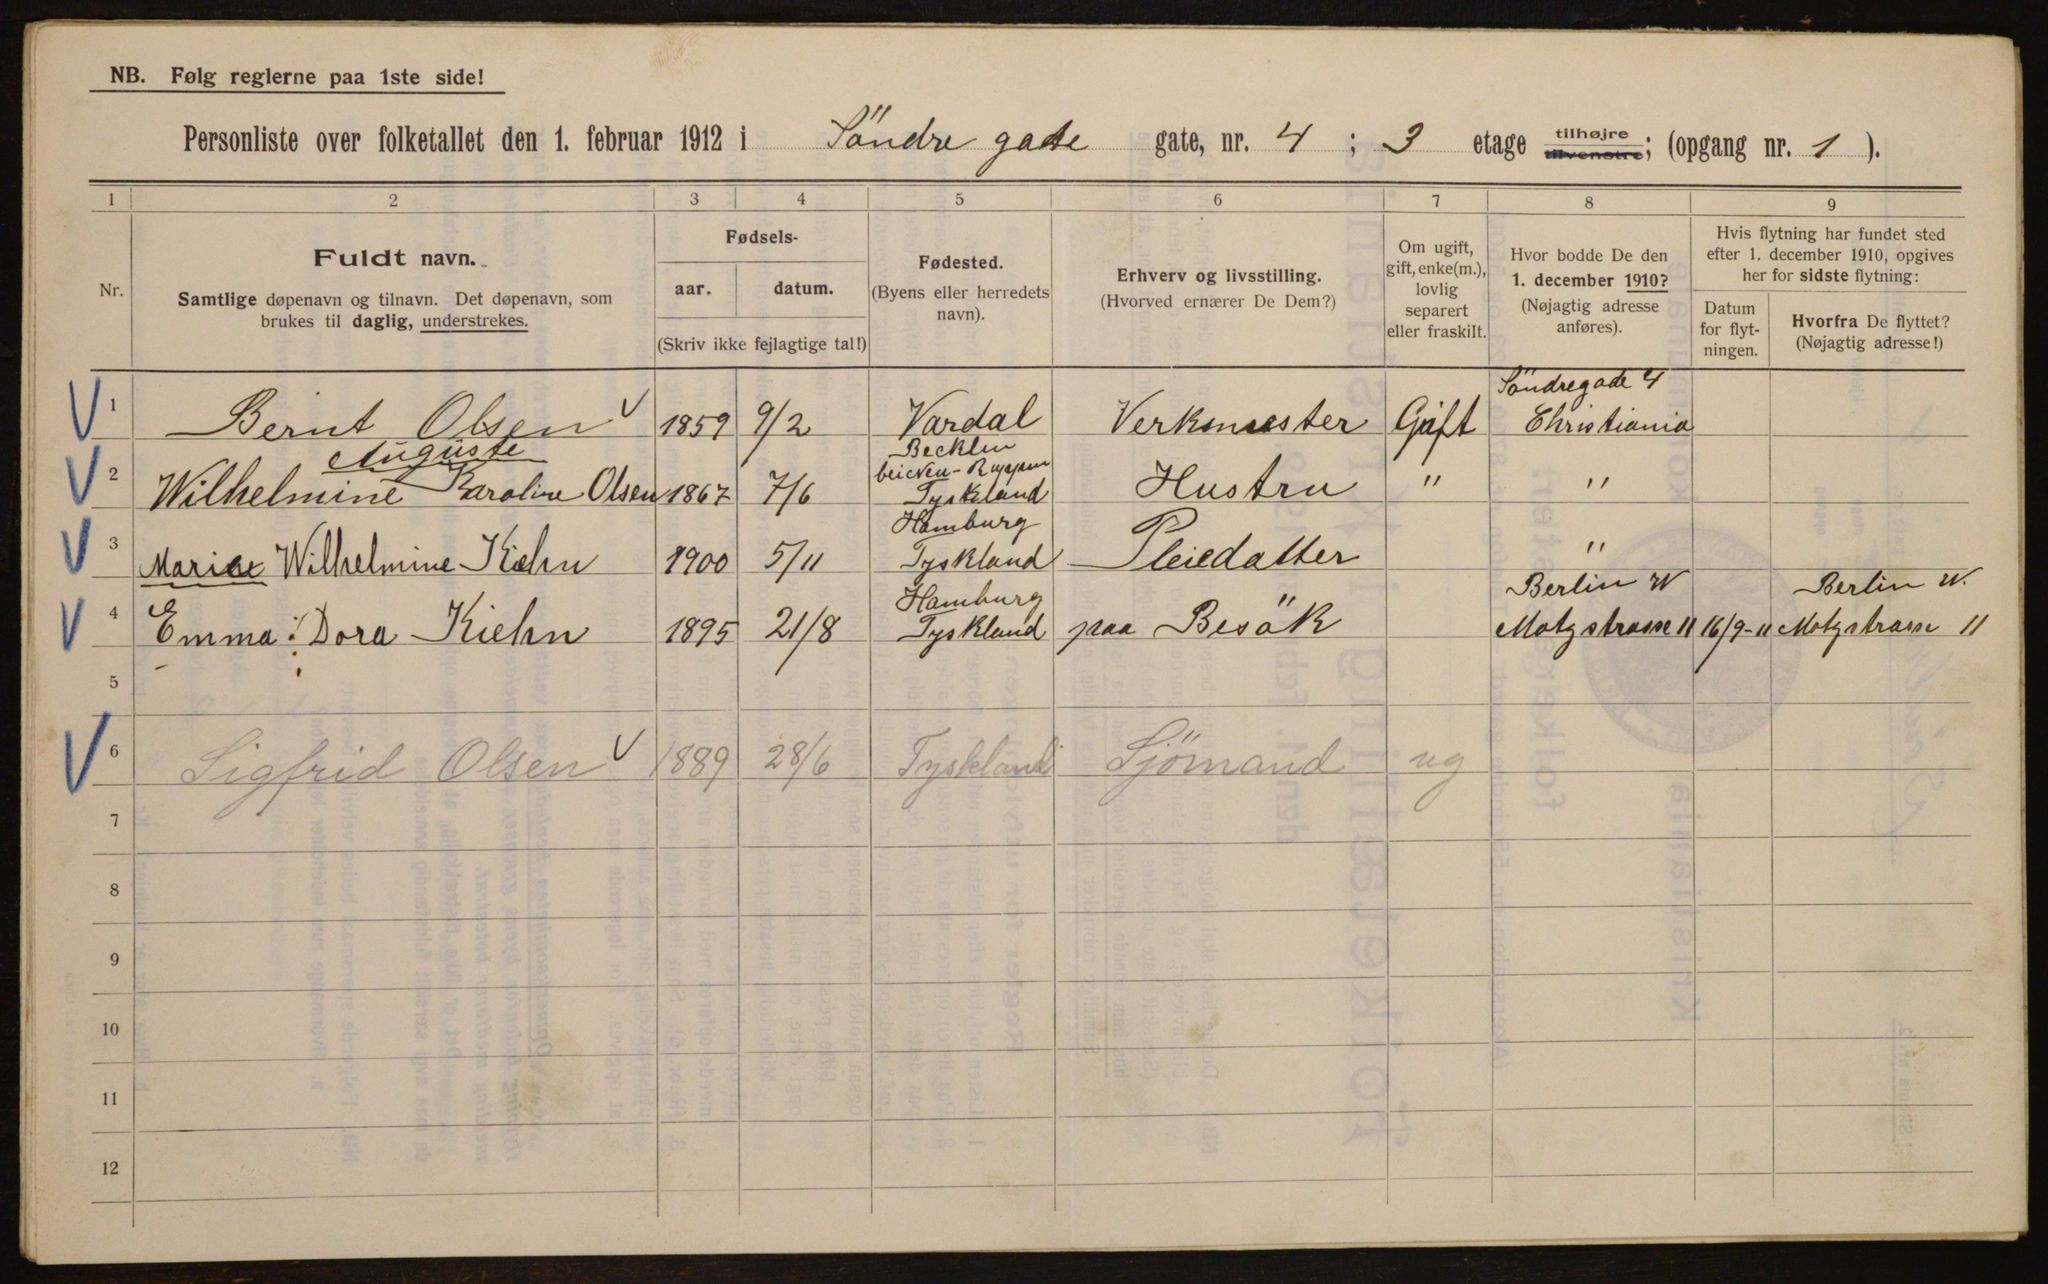 NB. Følg reglerne paa 1ste side!
Personliste over folketallet den 1. februar 1912 i Söndre gade gate, nr. 4 ; 3 etage tilhøjre tilvenstre; (opgang nr. 1 ).
1 2 3 4 5 6 7 8 9
Nr.
Fuldt navn.
Samtlige døpenavn og tilnavn. Det døpenavn, som
brukes til daglig, understrekes.
Fødsels-
aar. datum.
(Skriv ikke fejlagtige tal!)
Fødested.
(Byens eller herredets
navn).
Erhverv og livsstilling.
(Hvorved ernærer De Dem?)
Om ugift,
gift, enke(m.),
lovlig
separert
eller fraskilt.
Hvor bodde De den
1. december 1910?
(Nøjagtig adresse
anføres).
Hvis flytning har fundet sted
efter 1. december 1910, opgives
her for sidste flytning:
Datum
for flyt-
ningen.
Hvorfra De flyttet?
(Nøjagtig adresse!)
Söndregade 4
1 Bernt Olsen 1859 9/2 Vardal Verksmester Gift Christiania
Auguste
2 Wilhelmine Karoline Olsen 1867 7/6 Tyskland Hustru " "
Hamburg
3 Marie Wilhelmine Kiehn 1900 5/11 Tyskland Pleiedatter "
Hamburg Berlin W Berlin W.
4 Emma Dora Kiehn 1895 21/8 Tyskland paa Besök Motzstrasse 11 16/9-11 Motzstrasse 11
5
6 Sigfrid Olsen 1889 28/6 Tyskland Sjömand ug
7
8
9
10
11
12